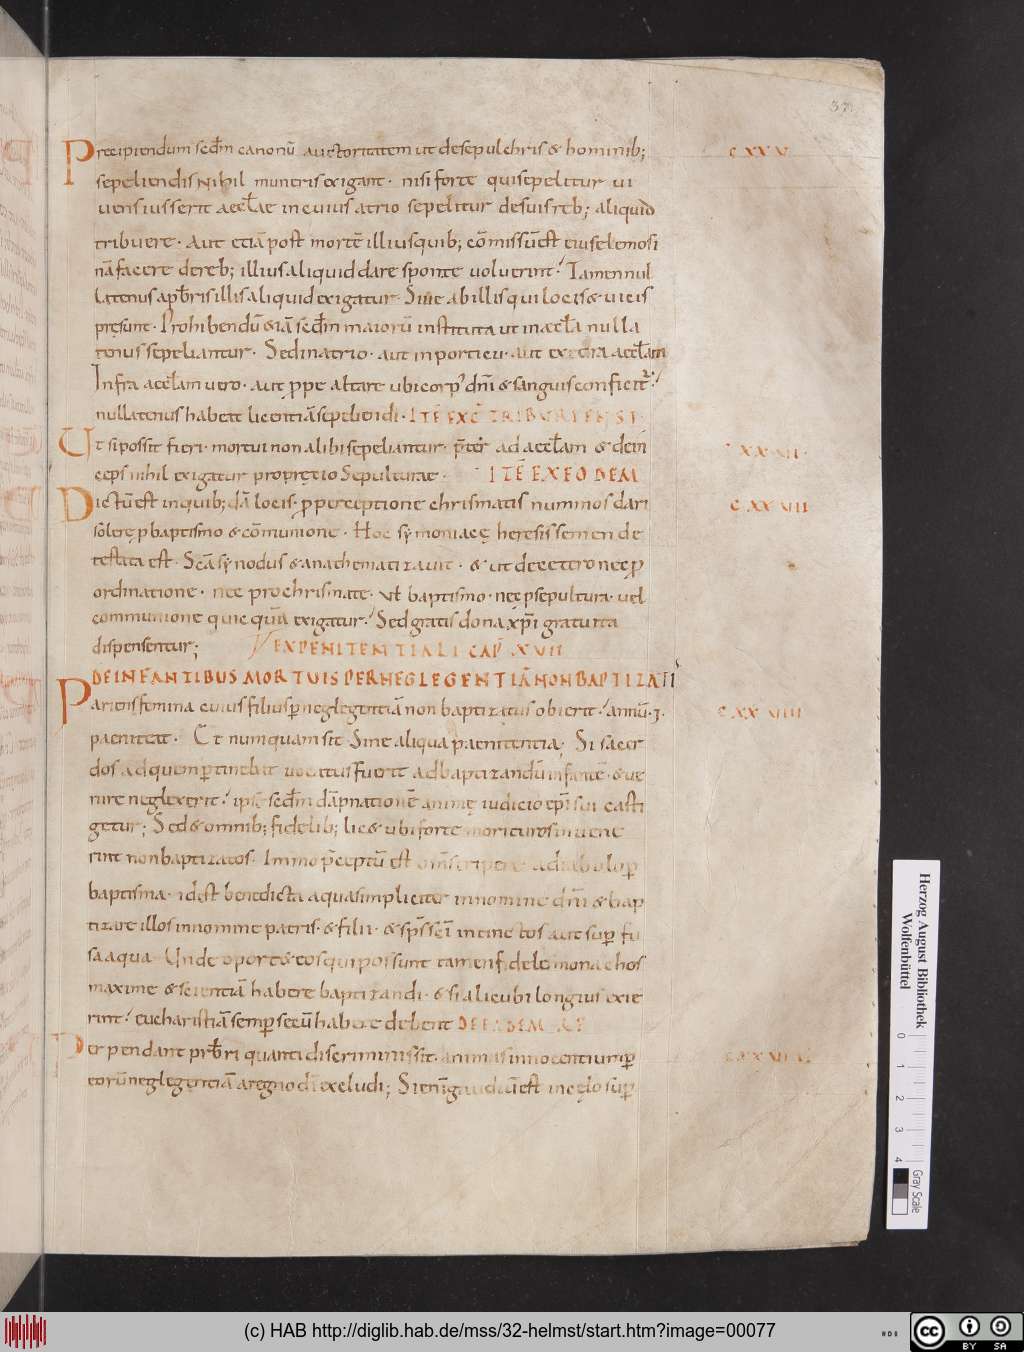 37
Precipiendum secdm canonū auctoritatem ut desepulchris & hominib; CXXXI
sepeliendis nihil muneris exigant. nisi forte qui sepelitur vi
vens iusserit aeccƚae in cuius atrio sepelitur desuis reb; aliquid
tribuere. Aut etiā post mortē illius quib; cōmissū est eius elemosi
nā facere dereb; illius aliquid dare sponte voluerint. Tamen nul
latenus a prb̄ris illis aliquid exigatur Sive ab illis qui locis & vicis
presunt. Prohibendū & iā secdm maiorū instituta ut in aeccƚa nulla
tenus sepeliantur. Sed in atrio. aut in porticu. aut exedra aeccƚam
Infra aeccƚam vero. aut ꝓpe altare ubi corp' dn̄i & sanguis conficit̄:
nullatenus habeat licentiā sepeliendi. ITĒ EXC TRIBURIENSI
Ut si possit fieri. mortui non alibi sepeliantur. p̄ter ad aeccƚam & dein CXXXII
ceps nihil exigatur pro pretio sepulturae. ITĒ EX EODEM
Dictū est in quib; dā locis. ꝓ perceptione chrismatis nummos dari CXXXIII
solere ꝓ baptismo & cōmunione. Hoc symoniacę heresis semen de
testata est. Scā synodus & anathematizavit. & ut decetero nec ꝓ
ordinatione. nec pro chrismate. vƚ baptismo. nec ꝓ sepultura. vel
communione quicquā exigatur. Sed gratis dona xp̄i gratuita
dispensentur;
EX PENITENTIALI CAP XVII
DE INFANTIBUS MORTUIS PER NEGLEGENTIĀ NON BAPTIZATIS
Pariens femina cuius filius ꝑ neglegentiā non baptizatus obierit annū.I. CXXXIIII
paeniteat. Et numquam sit Sine aliqua paenitentia; Si sacer
dos ad quem ꝑtinebat vocatus fuerit ad baptizandū infantē. & ve
nire neglexerit ipse secdm dāpnationē animę iudicio ep̄i sui casti
getur; Sed & omnib; fidelib; lic& ubi forte morituros invene
rint non baptizatos. Immo p̄ceptū est
baptisma. id est benedicta aqua simpliciter in nomine dn̄i & bap
tizare illos in nomine patris. & filii. & sp̄s sc̄i intinctos aut sup fu
sa aqua Unde oport& eos qui possunt tamen fideles monachos
maxime & scientiā habere baptizandi. & si alicubi longius exie
rint eucharistiā semp secū habere debent DE EADEM
Perpendant prb̄ri quanti discriminis sit. animas innocentium ꝑ
eorū neglegentiā aregno dī excludi; Si enī gravidū est in cęlo sup
Herzog August Bibliothek
Wolfenbüttel
0 1 2 3 4
Gray Scale
(c) HAB http://diglib.hab.de/mss/32-helmst/start.htm?image=00077
CC BY SA